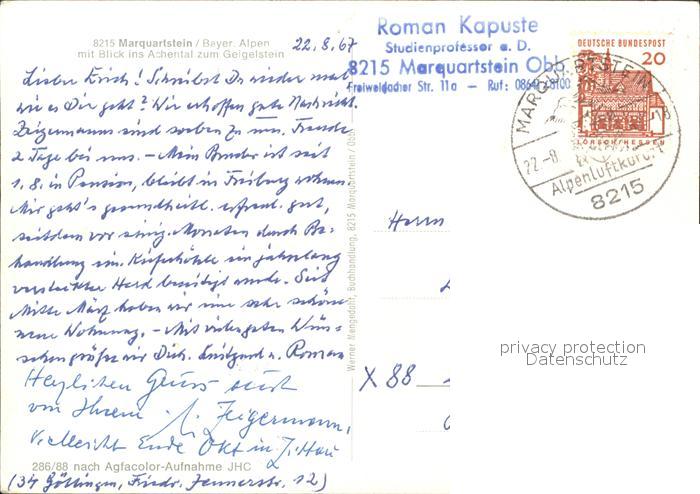 8215 Marquartstein / Bayer. Alpen
mit Blick ins Achental zum Geigelstein
22.8.67
Roman Kapuste
Studienprofessor a. D.
8215 Marquartstein Obb.
Freiweidacher Str. 11a – Ruf: 
DEUTSCHE BUNDESPOST
20
LORSCH/HESSEN
MARQUARTSTEIN
22.-8.
Alpenluftkurort
8215
Lieber Erich! Schreibst Du wieder mal
wie es Dir geht? Wir erhoffen gute Nachricht.
Zeigermanns sind soeben zu uns. Freude
2 Tage bei uns. – Mein Bruder ist seit
1.8. in Pension, bleibt in Freiburg wohnen.
Mir geht's gesundheitl. erfreul. gut,
seitdem vor einig. Monaten durch Be-
handlung im Kieferhöhle ein jahrelang
versteckter Herd beseitigt wurde. Seit
Mitte März haben wir eine sehr schöne
neue Wohnung. – Mit vielen guten Wün-
schen grüßen wir Dich. Luitgard u. Roman
Herzlichen Gruss auch
von Ihrem Zeigermann,
vielleicht Ende Okt in
286/88 nach Agfacolor-Aufnahme JHC
(34 Göttingen, Friedr. Jennerstr. 12)
Werner Mengedoht, Buchhandlung, 8215 Marquartstein / Obb.
Herrn
X 88
privacy protection
Datenschutz